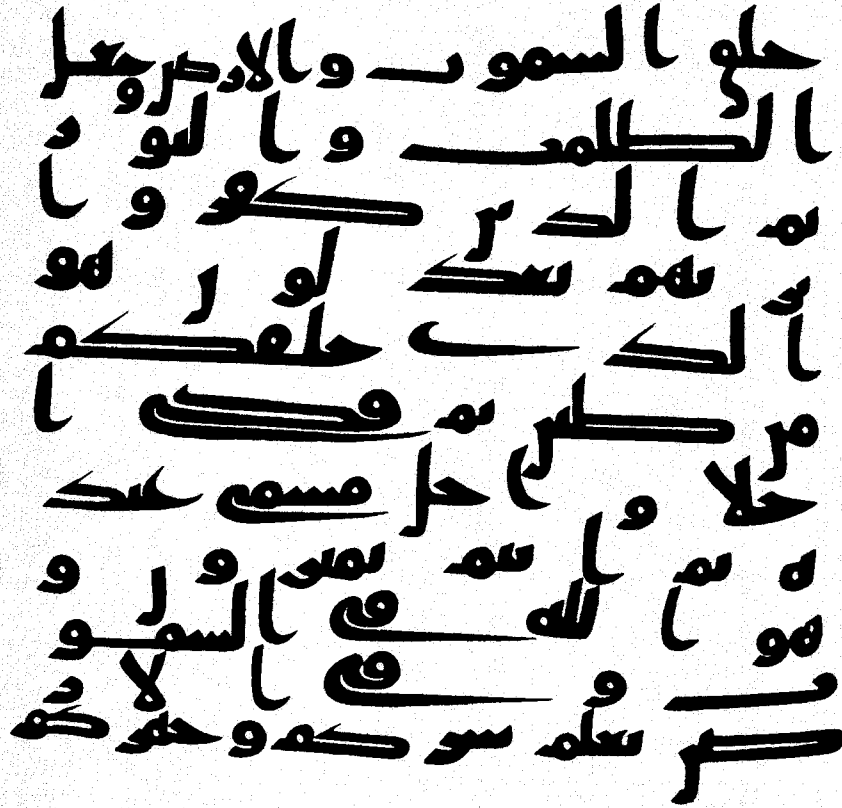 خلق السموت والارض وجعل
الظلمت والنور ث
م الذين كفروا
بربهم يعدلون هو
الذي خلقكم
من طين ثم قضى ا
جلا واجل مسمى عند
ه ثم انتم تمترون و
هو الله في السمو
ت وفي الار
ض يعلم سركم وجهركم